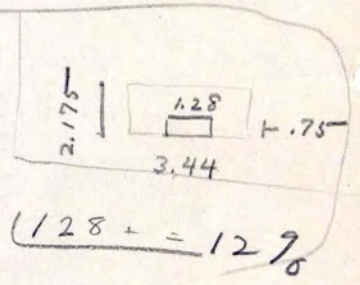 2.175
1.28
.75
3.44
128 + = 129